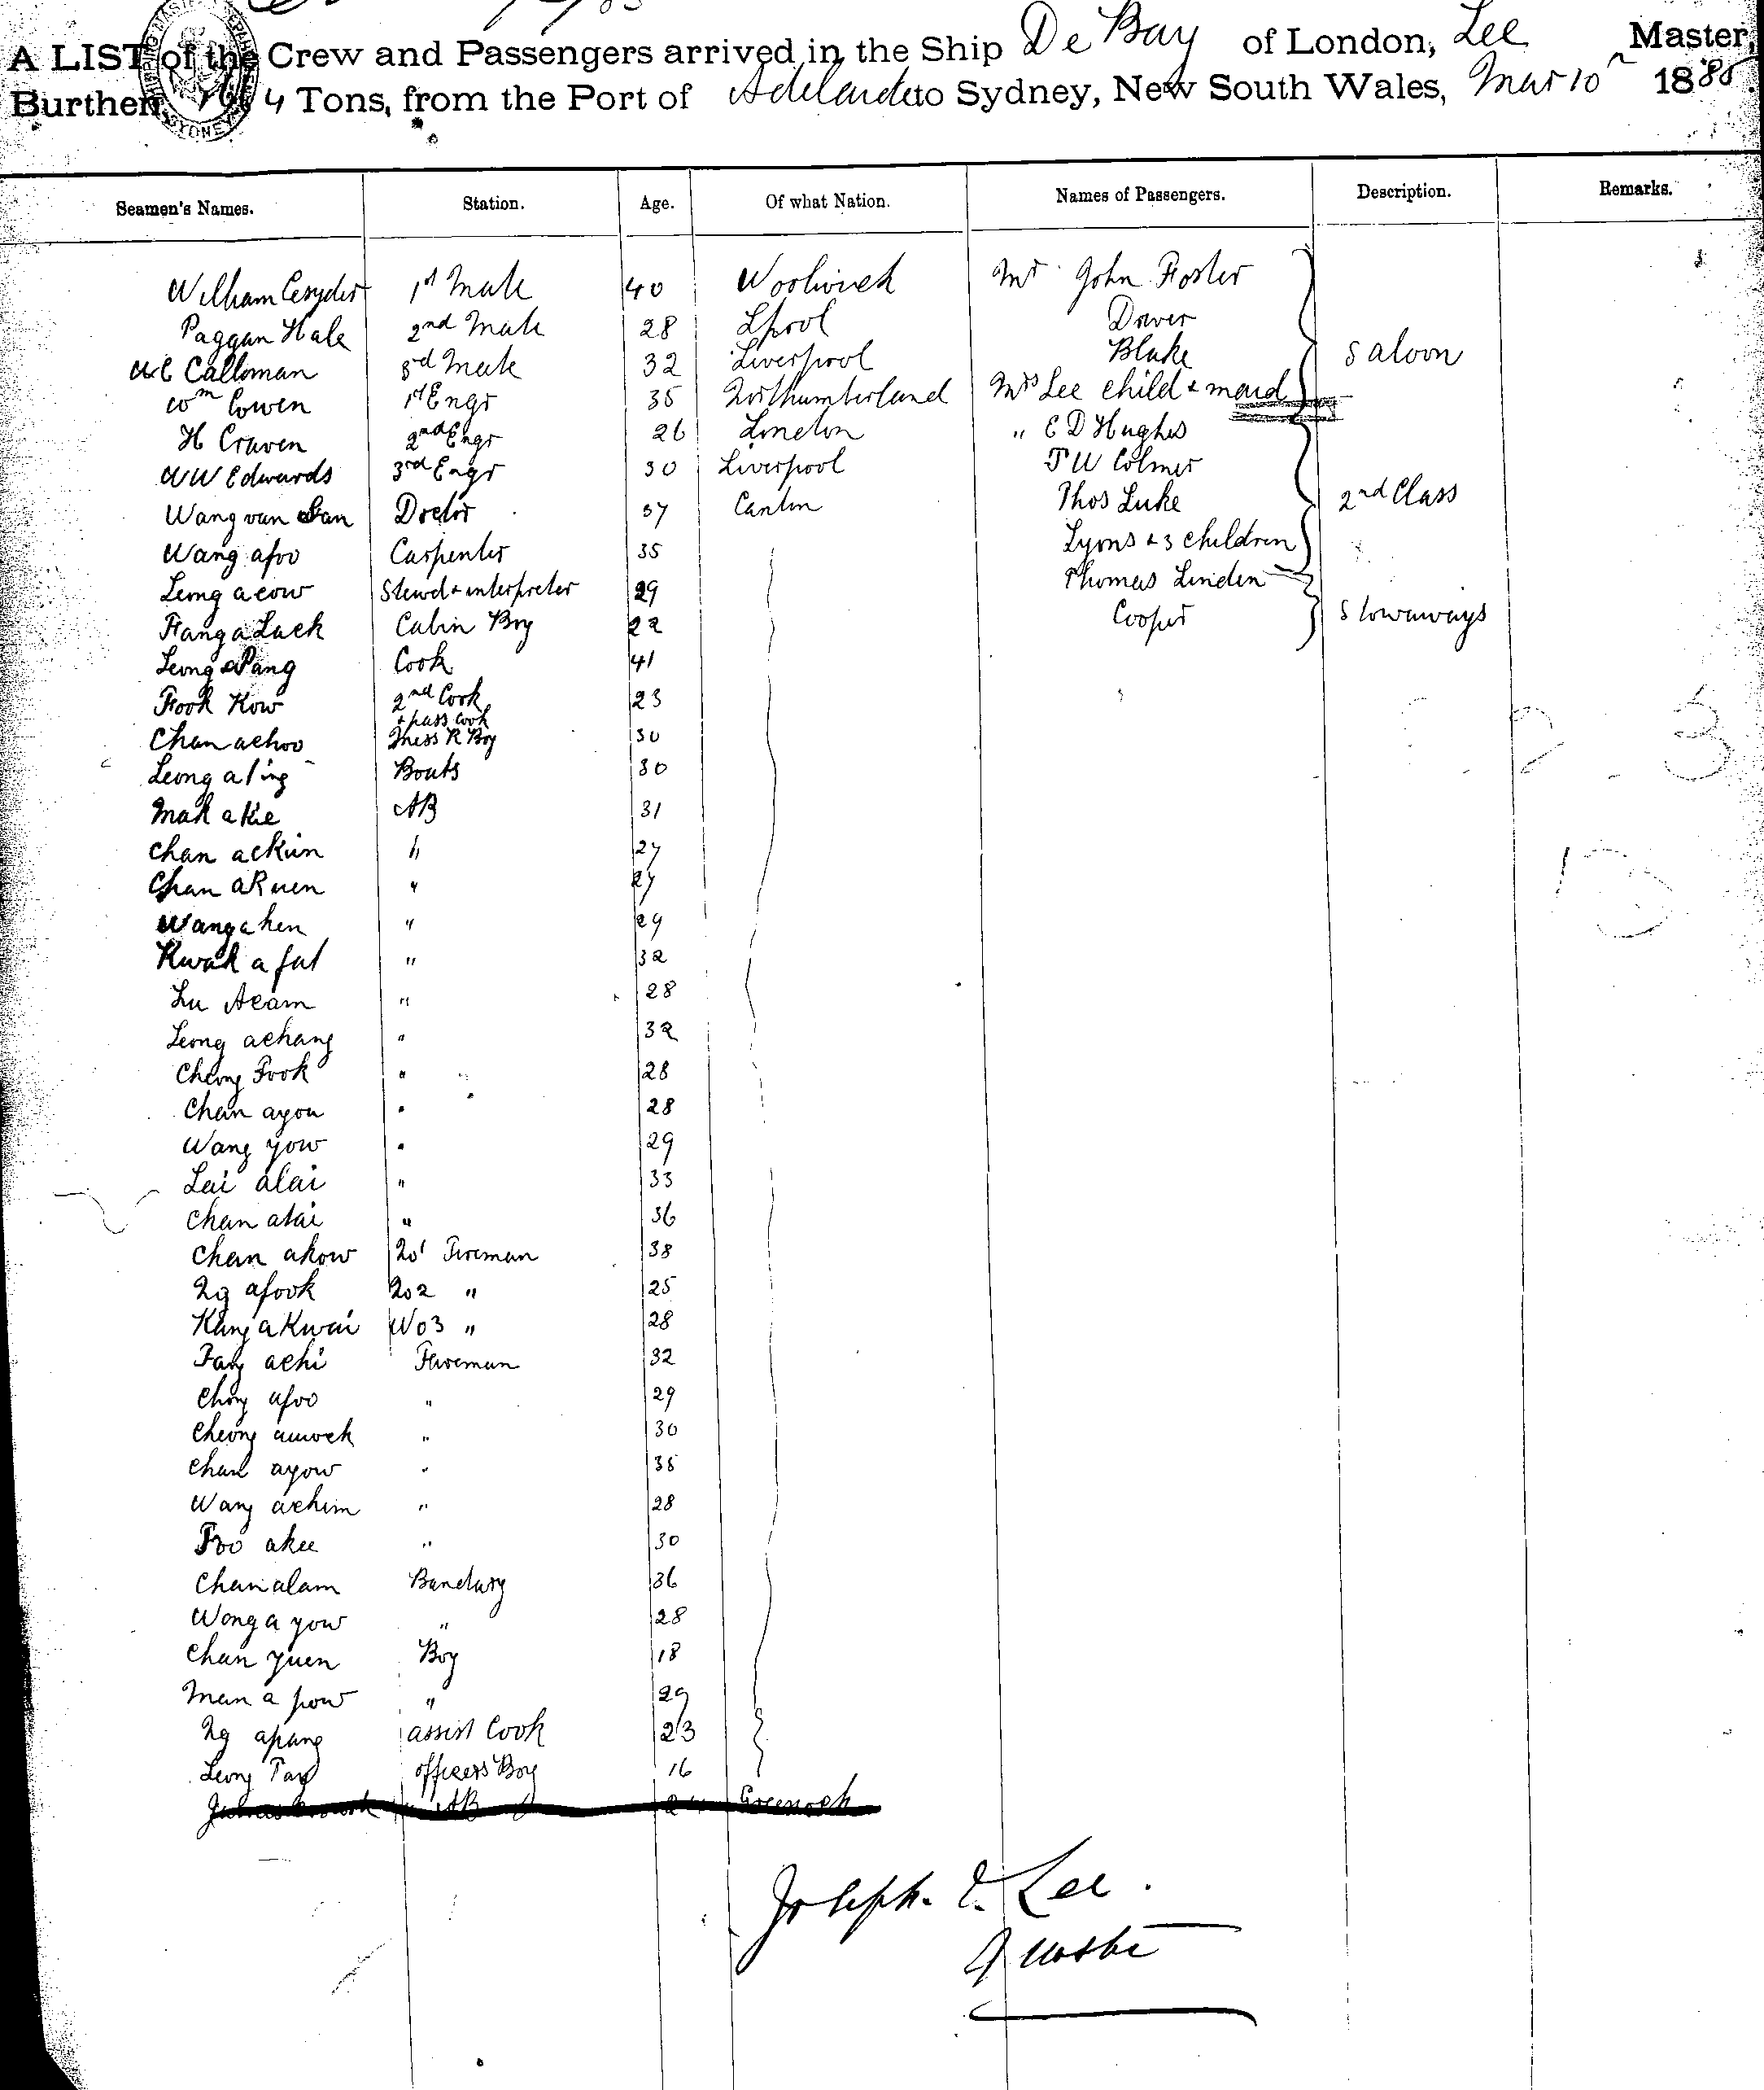 A LIST of the Crew and Passengers arrived in the Ship De Bay of London, Lee Master,
Burthen 4 Tons, from the Port of Adelaide to Sydney, New South Wales, Mar 10 188
Seamen's Names. Station. Age. Of what Nation. Names of Passengers. Description. Remarks.
William 1st Mate 40 Woolwich Mr John Foster
Paggan Hale 2nd Mate 28 Lpool Driver
Calloman 3rd Mate 32 Liverpool Blake Saloon
Wm Cowen 1st Engr 35 Northumberland Mrs Lee child & maid
H Craven 2nd Engr 26 London " C D Hughes
W W Edwards 3rd Engr 30 Liverpool T W Colmer
Wang van San Doctor 37 Canton Thos Luke 2nd Class
Wang afoo Carpenter 35 Lyons & 3 children
Leong acow Stewd & interpreter 29 Thomas Linden
Fang a Luck Cabin Boy 22 Cooper Stowaways
Leong aPang Cook 41
Fook Kow 2nd Cook 23
& pass Cook
Chan achoo Mess R Boy 30
Leong a ling Bouts 30
Mak a Kie AB 31
Chan ackim " 27
Chan aKuen " 27
Wang a hen " 29
Kwak a fat " 32
Lu Acam " 28
Leong achang " 32
Cheong Fook " 28
Chan ayou " 28
Wang yow " 29
Lai alai " 33
Chan atai " 36
Chan akow No1 Fireman 38
Ng afook No2 " 25
Kang a Kwai No3 " 28
Fang achi Fireman 32
Chong afoo " 29
Cheong " 30
Chan ayow " 35
Wang achim " 28
Foo akee " 30
Chan alam Bandary 36
Wong a yow " 28
Chan yuen Boy 18
Man a pow " 29
Ng apang assist Cook 23
Leong Tay officers Boy 16
AB Greenock
Joseph. Lee.
Master